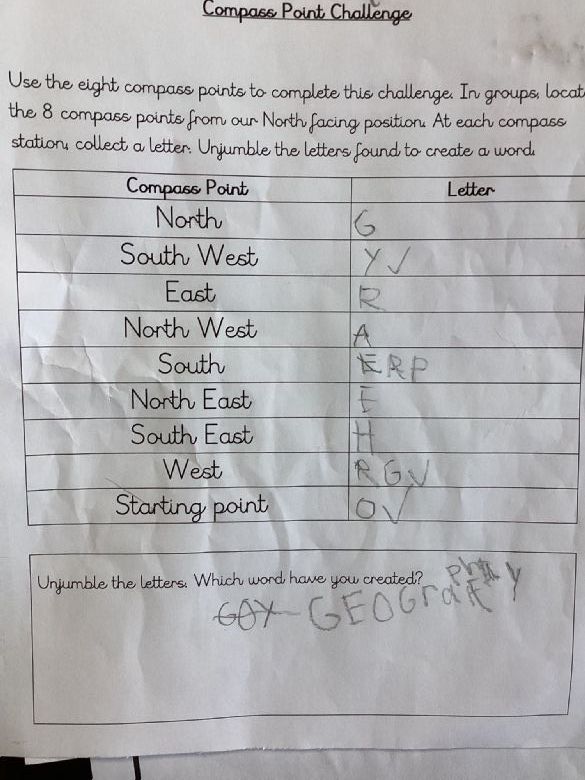 Compass Point Challenge
Use the eight compass points to complete this challenge. In groups, locat
the 8 compass points from our North facing position. At each compass
station, collect a letter. Unjumble the letters found to create a word.
Compass Point Letter
North G
South West Y ✓
East R
North West A
South E R P
North East E
South East H
West R G ✓
Starting point O ✓
Unjumble the letters. Which word have you created?
GOY GEOGra phy